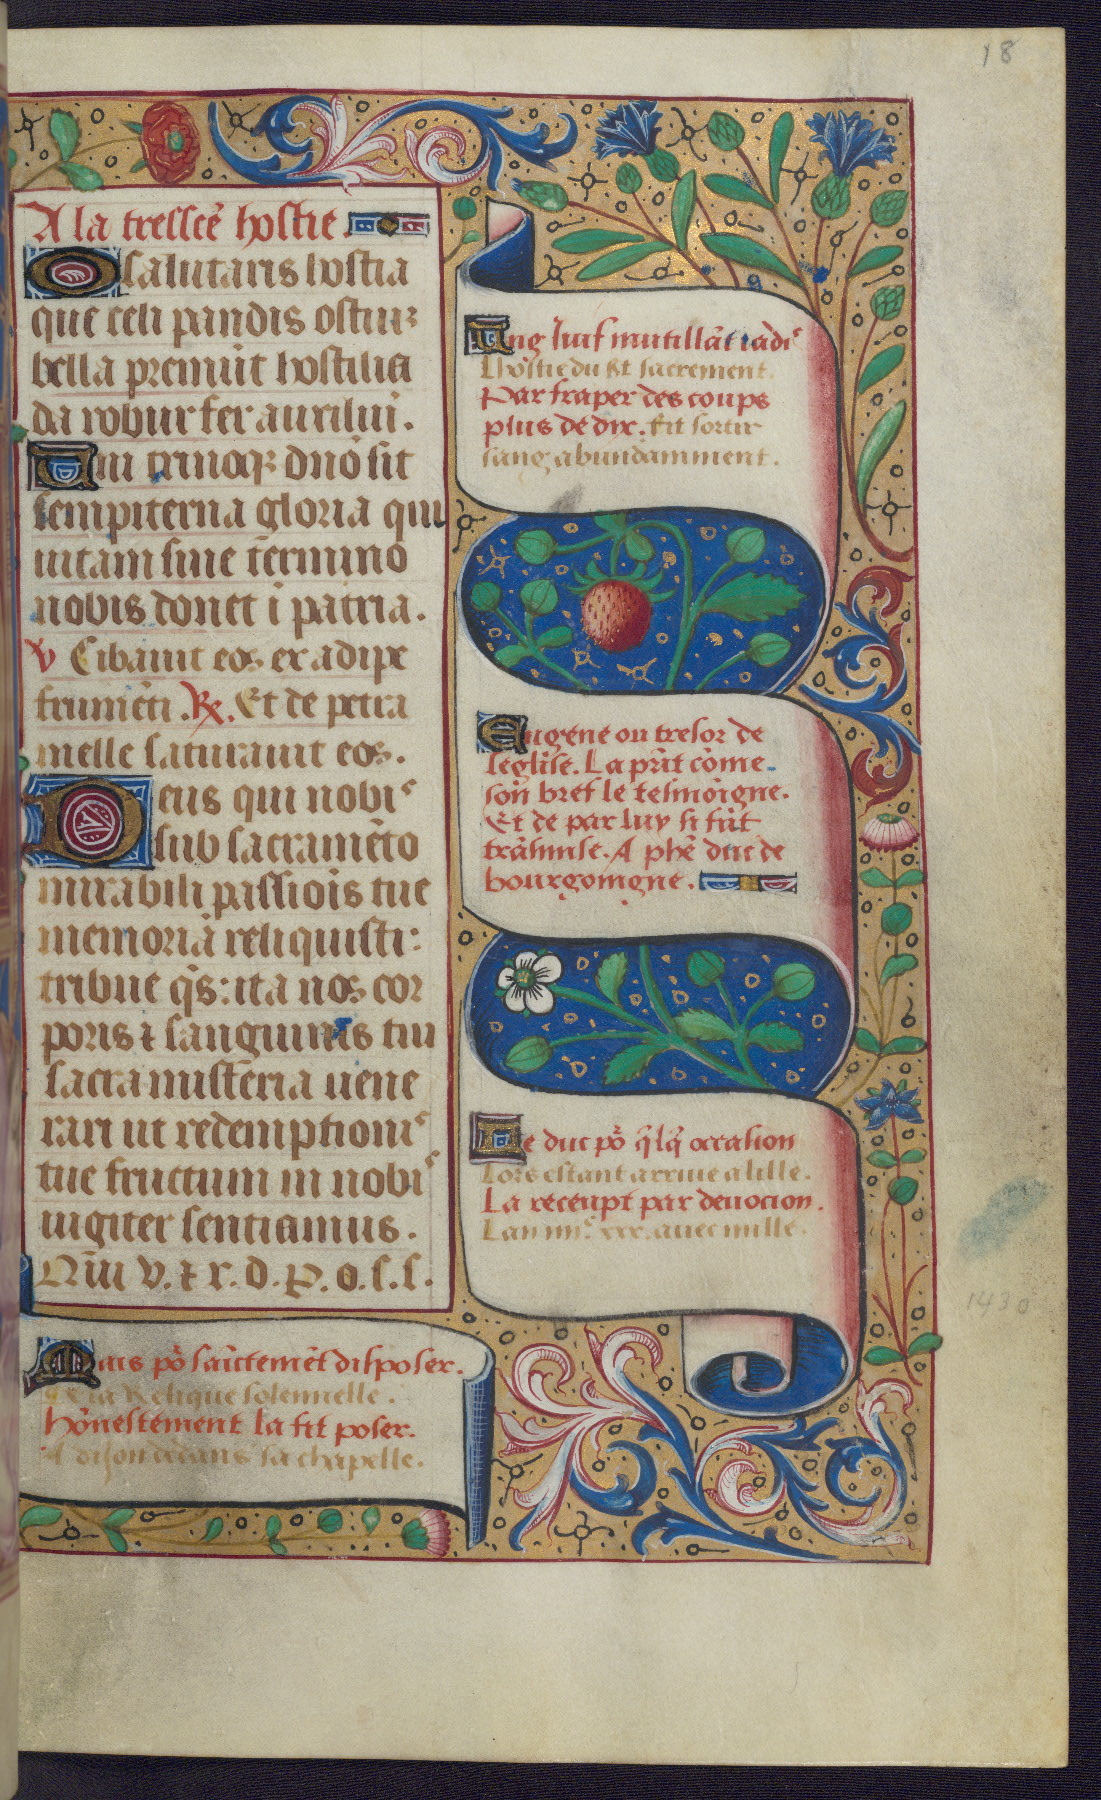 18
A la tressce᷑ hostie
O salutaris hostia
que celi pandis ostiuꝫ
bella premūt hostilia
da robur fer auxiliū.
Uni trinoqꝫ dn̄o sit
sempiterna gloria qui
uitam sine termino
nobis donet ī patria.
V Cibauit eos ex adipe
frumēti. Rx. Et de petra
melle saturauit eos.
Deus qui nobis
sub sacramēto
mirabili passiōis tue
memoriā reliquisti:
tribue q̄s: ita nos cor
poris ⁊ sanguinis tui
sacra misteria uene
rari ut redemptionis
tue fructum in nobis
iugiter sentiamus.
Qui v. ⁊ r. d. P. o. s. s.
Ung Juif mutillāt iadis
Lhostie du st sacrement.
Par fraper des coups
plus de dix. fit sortir
sang abundamment.
Eugene ou tresor de
leglise. La prīt cōme
son bref le tesmoigne.
Et de par luy si fūt
trāsmise. A phē duc de
bourgoingne.
Le duc pō q̄lq̄ occasion
Lors estant arriue a lille.
La receupt par deuocion.
Lan iiiiᶜ xxx. auec mille.
1430
Mais pō sainctemēt disposer.
De la Relique solennelle.
hōnestement la fit poser.
A diion dedans sa chapelle.